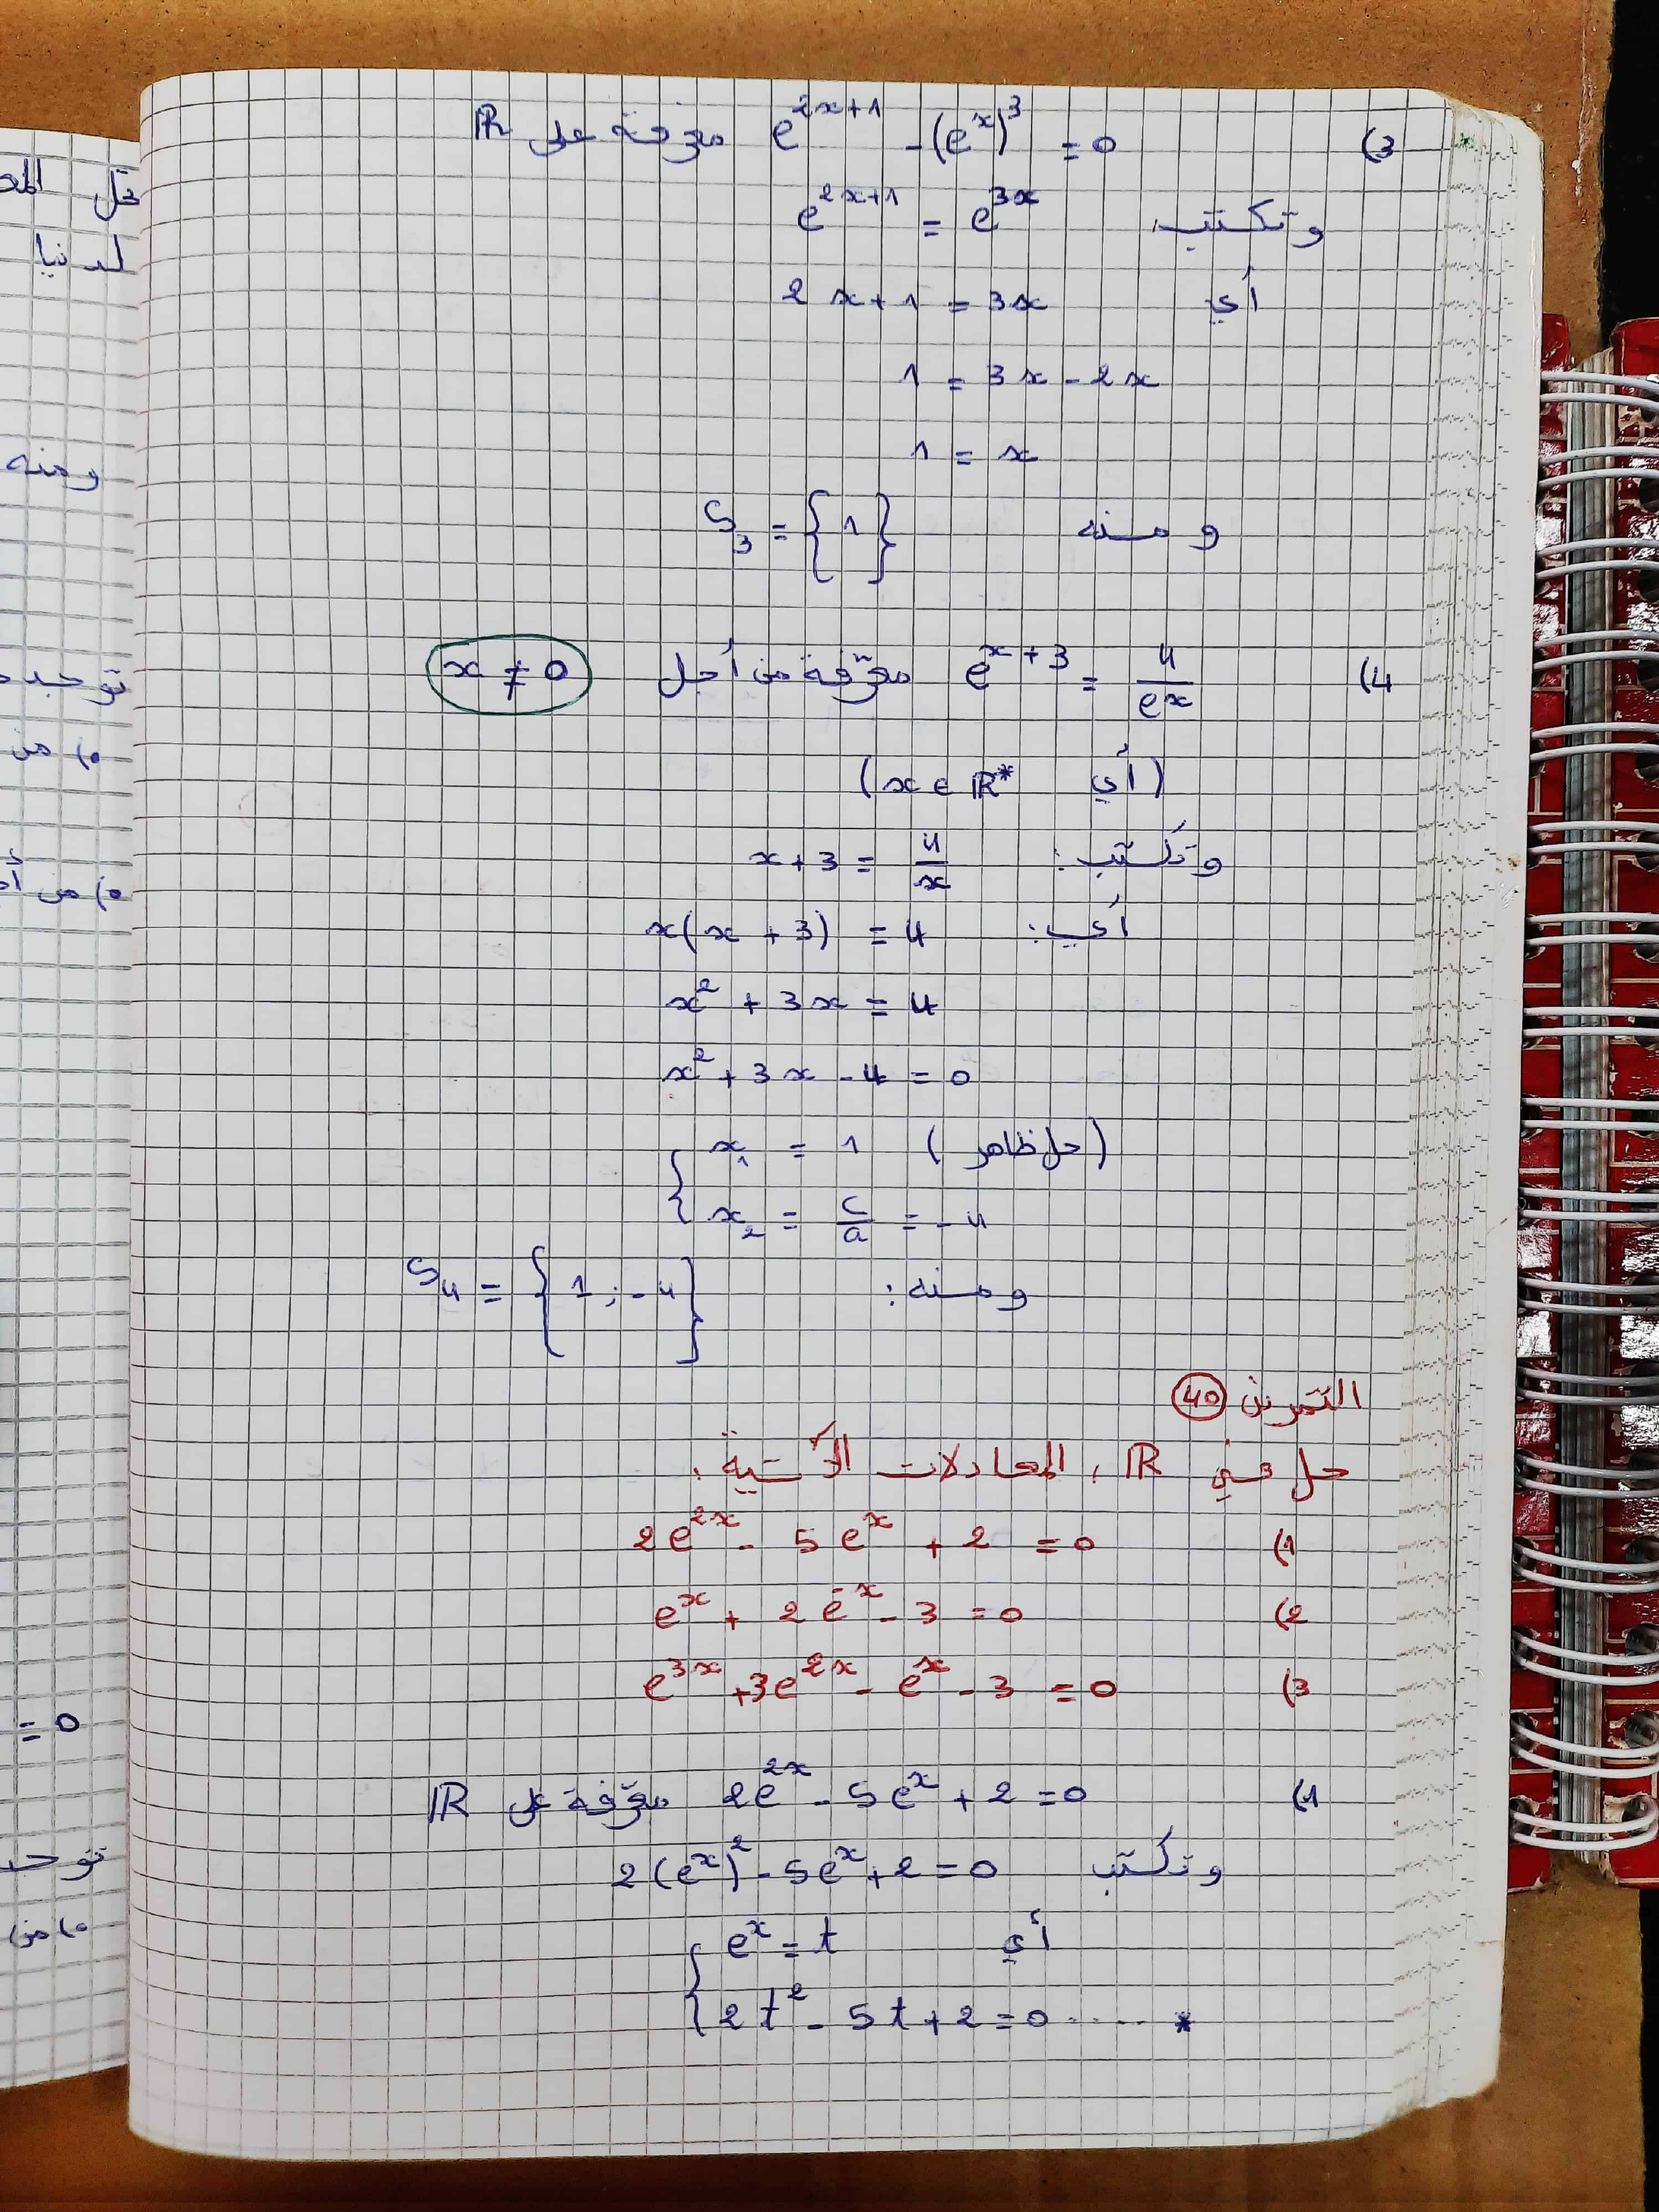 3) e^{2x+1} - (e^x)^3 = 0 معرفة على ℝ
وتكتب: e^{2x+1} = e^{3x}
أي 2x+1 = 3x
1 = 3x - 2x
1 = x
ومنه S_3 = {1}
4) e^{x+3} = \frac{4}{ex} معرّفة من أجل x ≠ 0
(أي x ∈ ℝ*)
وتكتب: x+3 = \frac{4}{x}
أي: x(x+3) = 4
x^2 + 3x = 4
x^2 + 3x - 4 = 0
x_1 = 1 (حل ظاهر)
x_2 = \frac{c}{a} = -4
ومنه: S_4 = {1 ; -4}
التمرين 40
حل في ℝ، المعادلات الآتية:
1) 2e^{2x} - 5e^x + 2 = 0
2) e^x + 2e^{-x} - 3 = 0
3) e^{3x} + 3e^{2x} - e^x - 3 = 0
1) 2e^{2x} - 5e^x + 2 = 0 معرّفة على ℝ
وتكتب 2(e^x)^2 - 5e^x + 2 = 0
أي e^x = t
2t^2 - 5t + 2 = 0 ..... *
لدنيا
ومنه
من
= 0